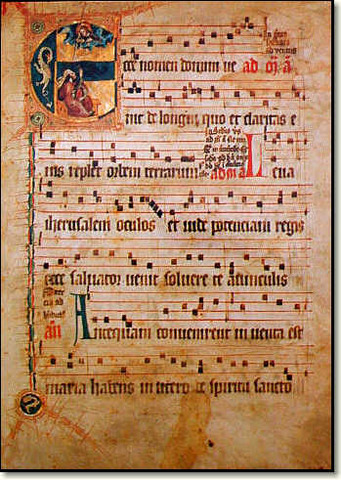 Ecce nomen domini ve ad
nit de longinquo et claritas e
ius replet orbem terrarum Leua
iherusalem oculos et uide potenciam regis
ecce saluator uenit soluere te a uinculis
Antequam conuenirent inuenta est
maria habens in utero de spiritu sancto